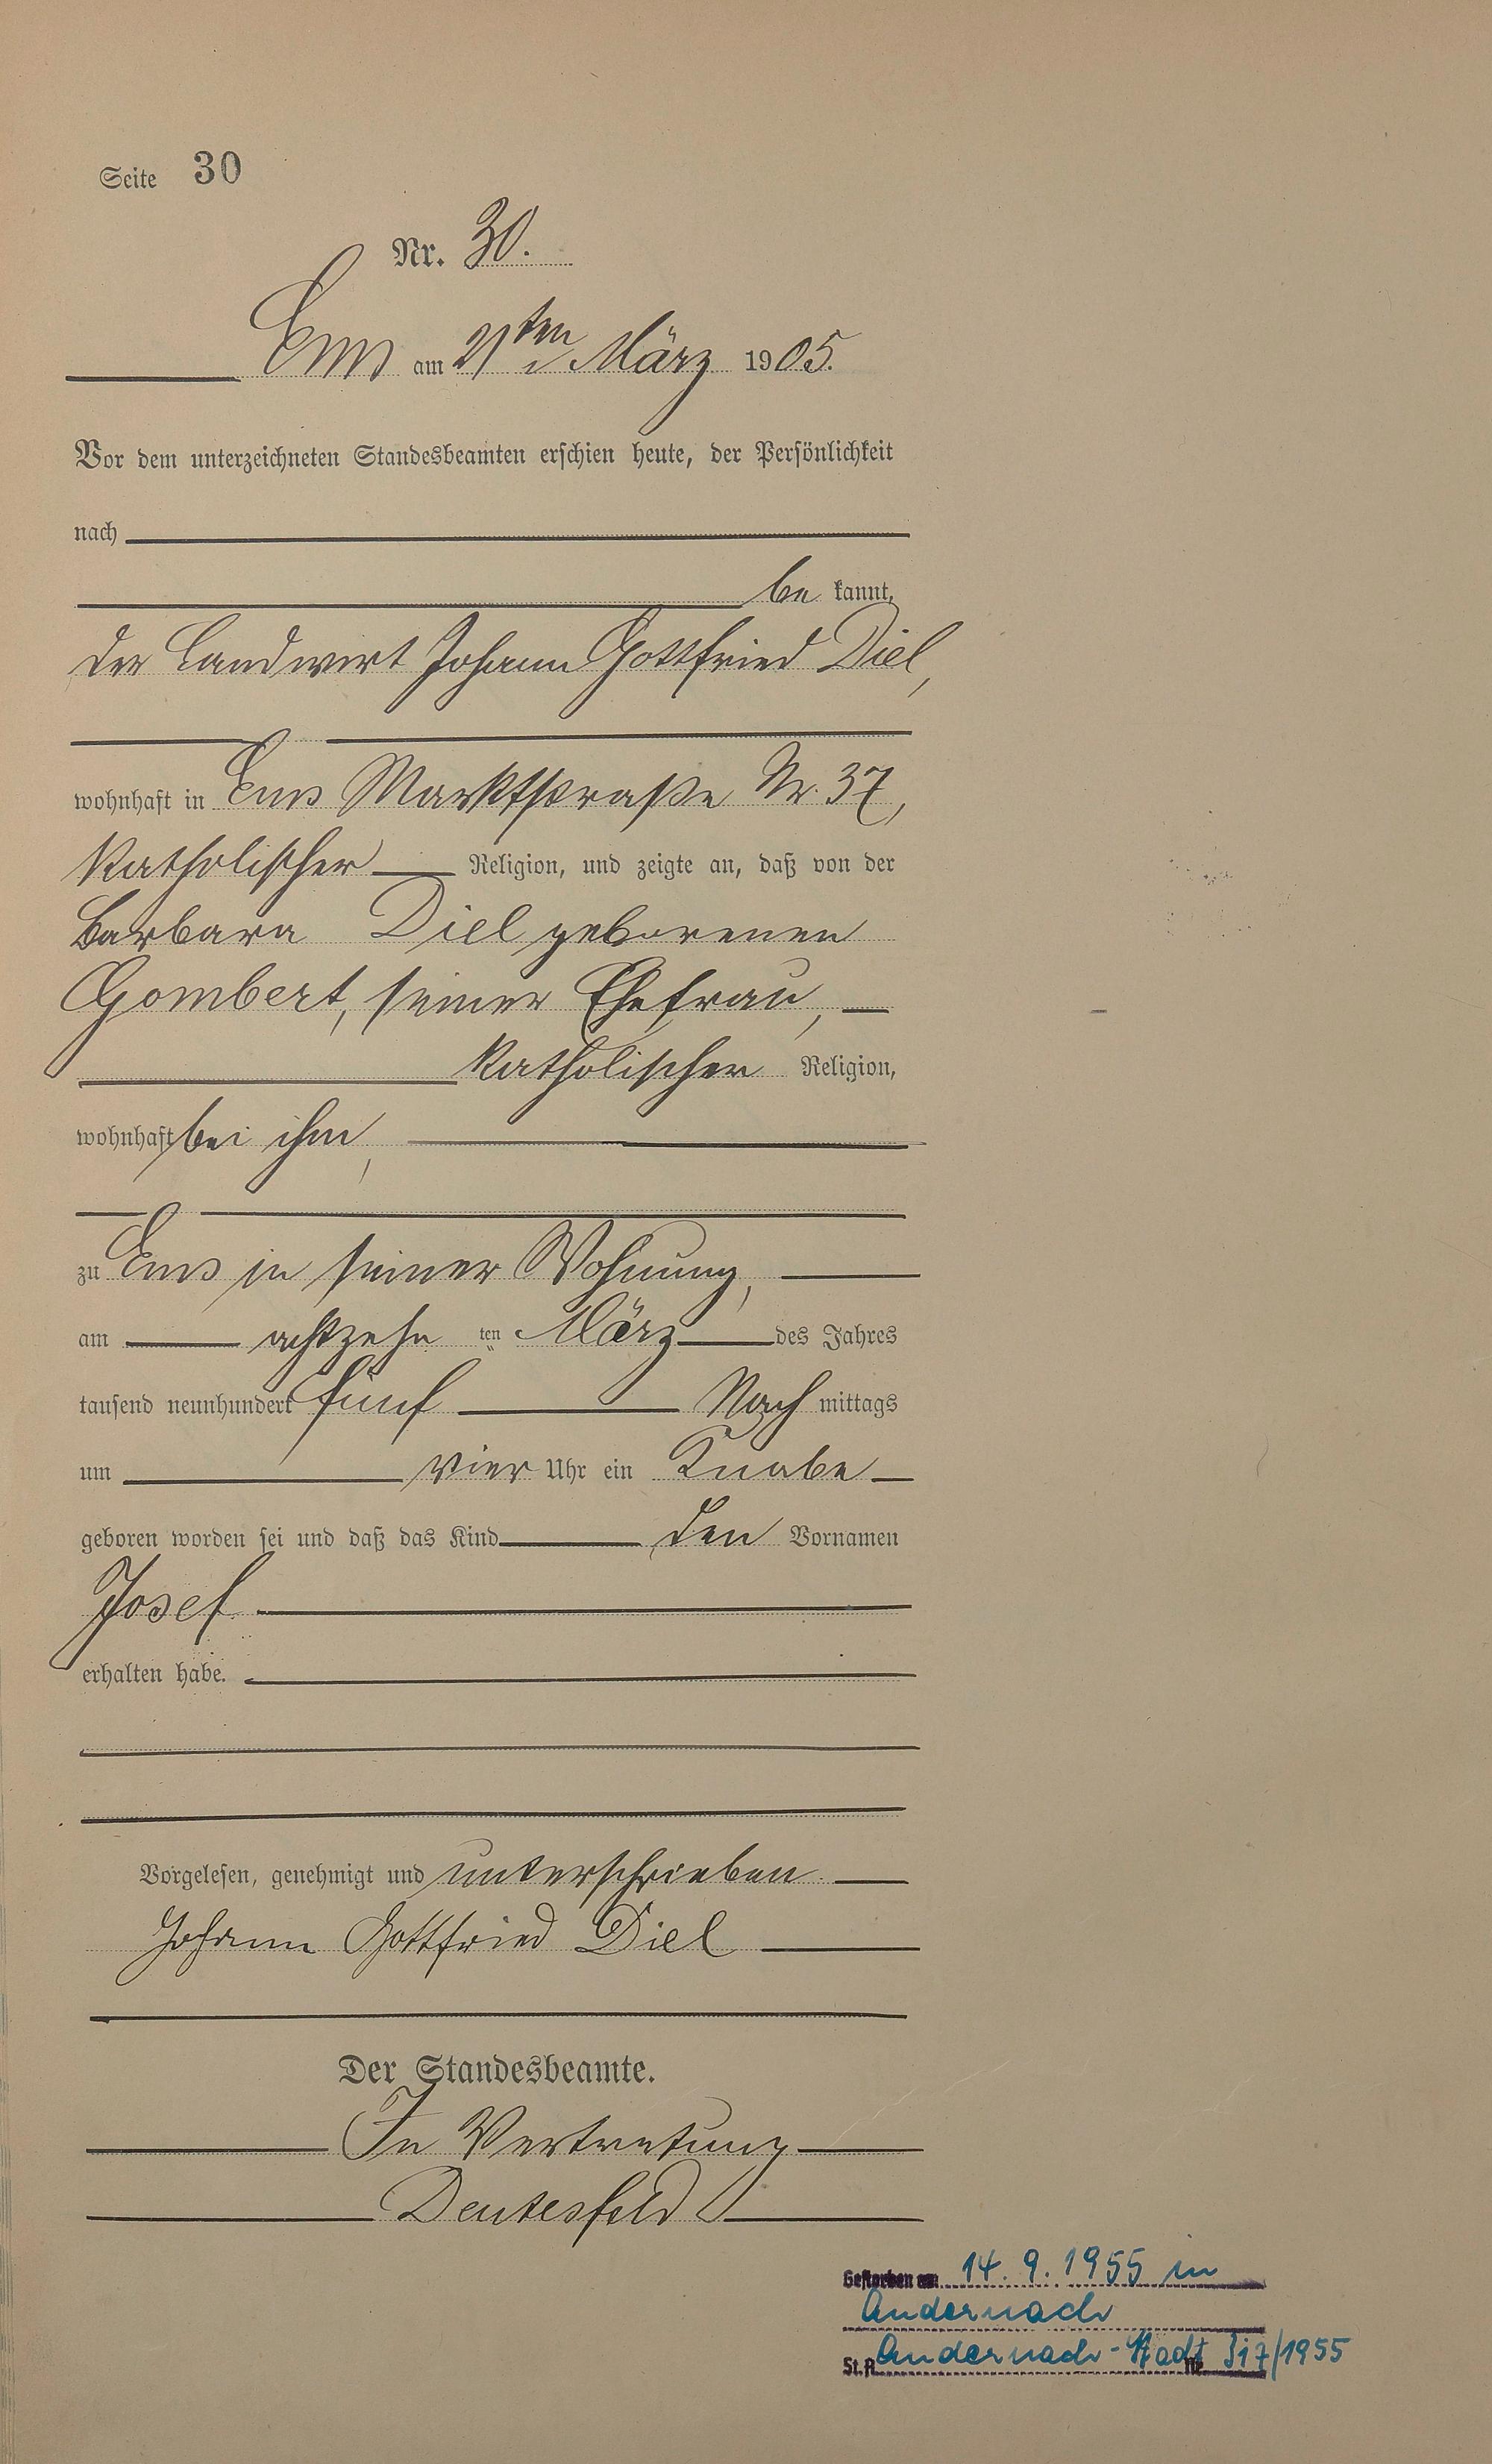 Seite 30
Nr. 30.
Ems am 21ten März 1905.
Vor dem unterzeichneten Standesbeamten erschien heute, der Persönlichkeit
nach
be kannt,
der Landwirt Johann Gottfried Diel,
wohnhaft in Ems Marktstraße Nr. 37,
katholischer Religion, und zeigte an, daß von der
Barbara Diel geborenen
Gombert, seiner Ehefrau,
katholischer Religion,
wohnhaft bei ihm,
zu Ems in seiner Wohnung,
am achtzehn ten März des Jahres
tausend neunhundert fünf Nach mittags
um vier Uhr ein Knabe
geboren worden sei und daß das Kind den Vornamen
Josef
erhalten habe.
Vorgelesen, genehmigt und unterschrieben.
Johann Gottfried Diel
Der Standesbeamte.
In Vertretung
Deutesfeld
Gestorben am 14. 9. 1955 in
Andernach
St.A. Andernach-Stadt Nr. 317/1955